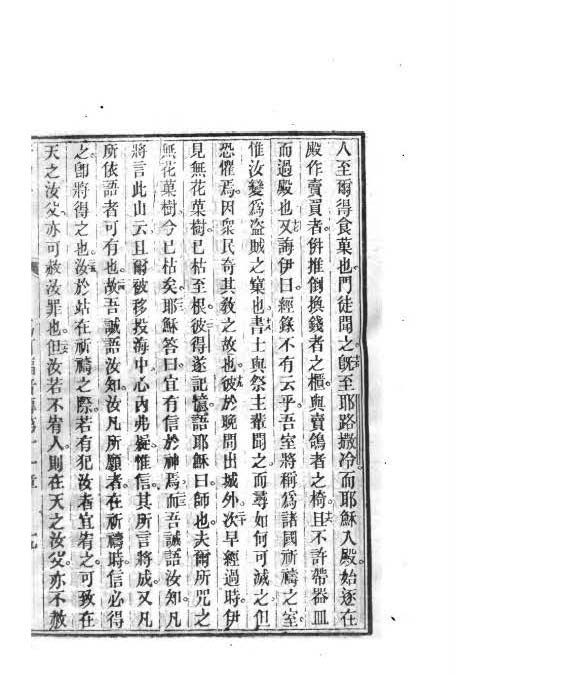 人至爾得食菓也。門徒聞之。旣至耶路撒冷。而耶穌入殿。始逐在
殿作賣買者。併推倒換錢者之櫃。與賣鴿者之椅。且不許帶器皿
而過殿也。又誨伊曰。經錄不有云乎。吾室將稱爲諸國祈禱之室。
惟汝變爲盜賊之窠也。書士與祭主輩聞之。而尋如何可滅之。但
恐懼焉。因衆民奇其敎之故也。彼於晚間出城外。次早經過時。伊
見無花菓樹已枯至根。彼得遂記憶。語耶穌曰。師也。夫爾所咒之
無花菓樹。今已枯矣。耶穌答曰。宜有信於神焉。而吾誠語汝知。凡
將言此山云。且爾被移投海中。心內弗疑。惟信其所言將成。又凡
所依語者可有也。故吾誠語汝知。汝凡所願者。在祈禱時。信必得
之。卽將得之也。汝於站在祈禱之際。若有犯汝者。宜宥之。可致在
天之汝父。亦可赦汝罪也。但汝若不宥人。則在天之汝父。亦不赦